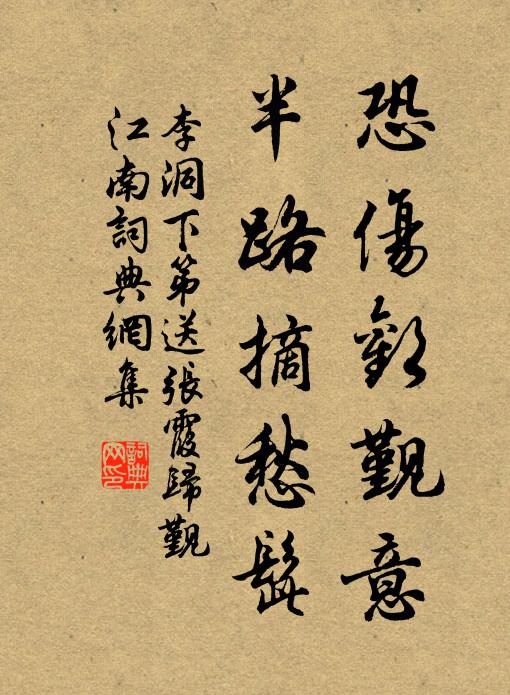 恐傷歡覲意
半路摘愁髭
李洞下第送張霞歸覲
江南詞典網集
詞典网印